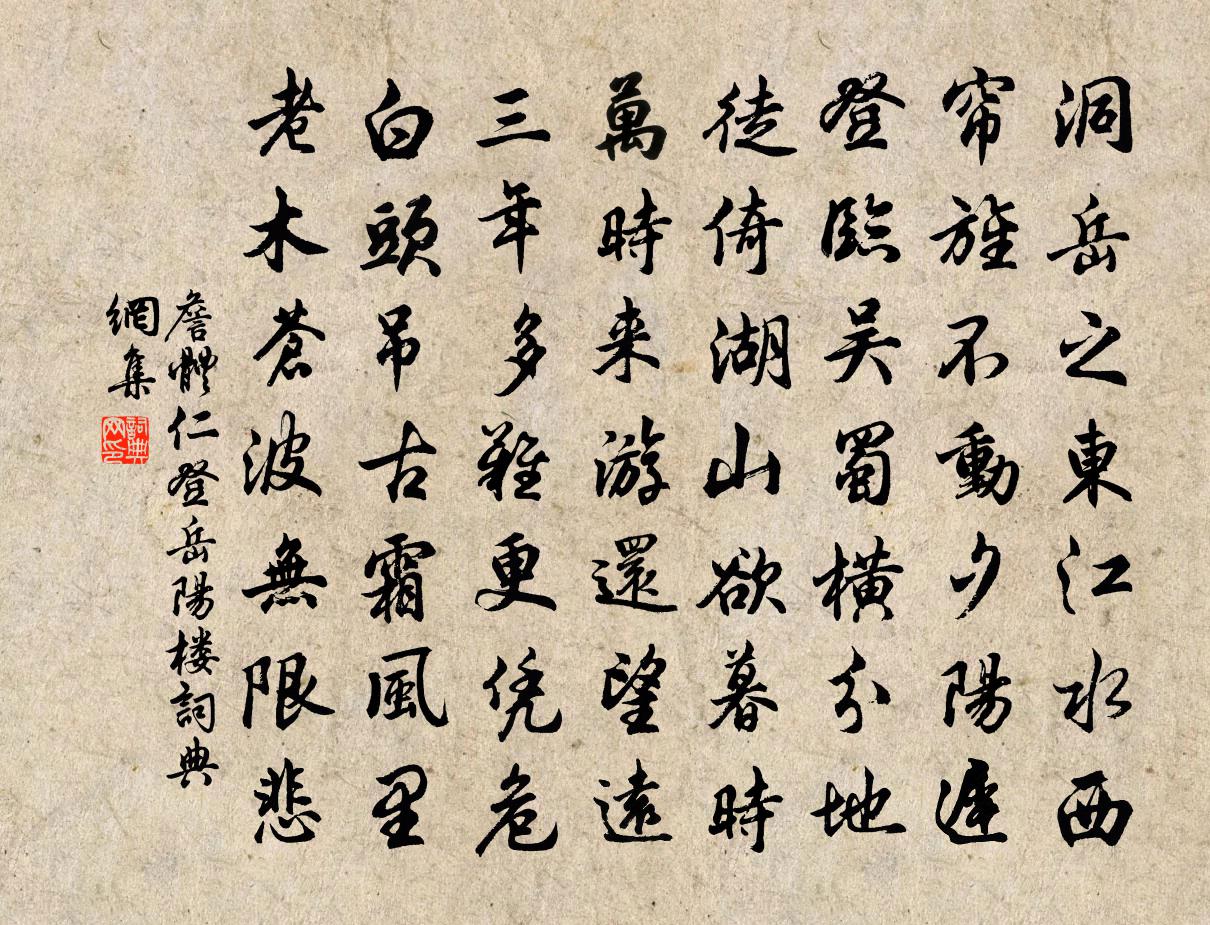 洞岳之東江水西
帘旌不動夕陽遲
登臨吴蜀橫分地
徒倚湖山欲暮時
萬時来游還望遠
三年多難更凭危
白頭吊古霜風里
老木蒼波無限悲
詹體仁登岳陽楼詞典
網集
詞典
网印